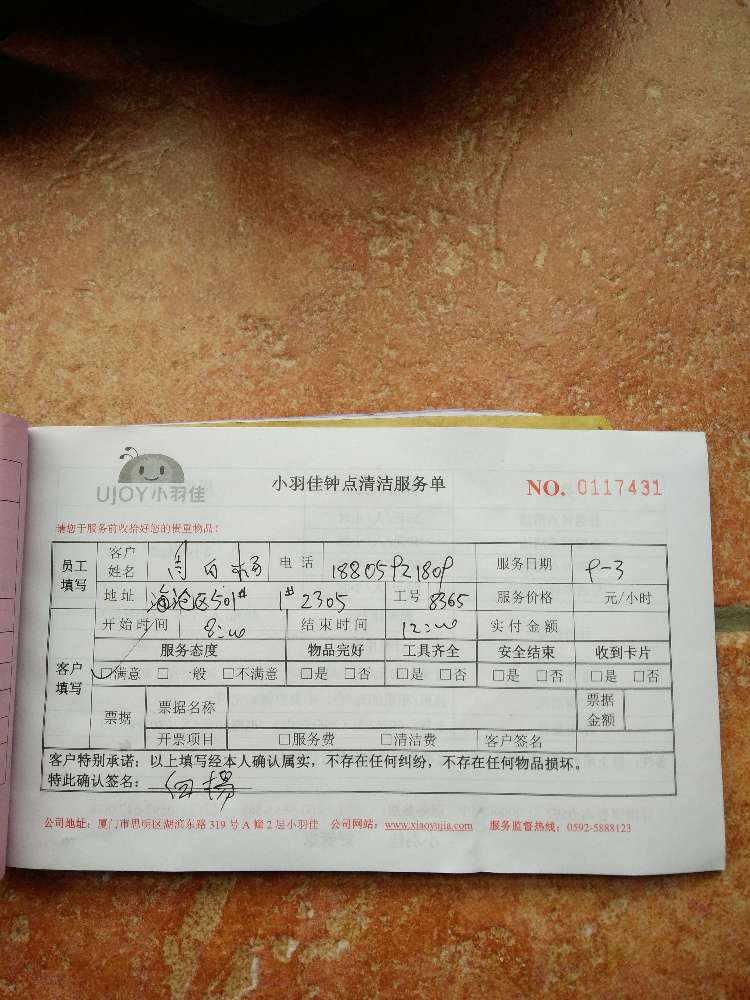 UJOY小羽佳
小羽佳钟点清洁服务单
NO. 0117431
请您于服务前收拾好您的贵重物品：
员工填写 客户姓名 周 电话 服务日期 9-3
地址 海沧区501# 1# 2305 工号 8365 服务价格 元/小时
开始时间 8:00 结束时间 12:00 实付金额
客户填写 服务态度 物品完好 工具齐全 安全结束 收到卡片
☑满意 □一般 □不满意 □是 □否 □是 □否 □是 □否 □是 □否
票据 票据名称 票据金额
开票项目 □服务费 □清洁费 客户签名
客户特别承诺：以上填写经本人确认属实，不存在任何纠纷，不存在任何物品损坏。
特此确认签名：
公司地址：厦门市思明区湖滨东路 319 号 A 幢 2 层小羽佳 公司网站：www.xiaoyujia.com 服务监督热线：0592-5888123